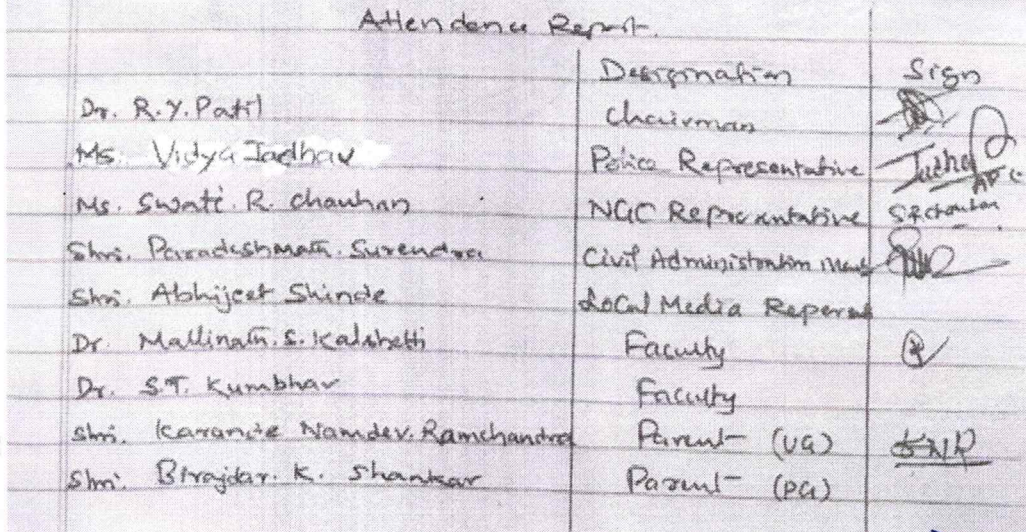 Attendance Report.
Designation Sign
Dr. R.Y. Patil Chairman
Ms. Vidya Jadhav Police Representative
Ms. Swati. R. Chauhan NGC Representative S.R.Chauhan
Shri. Paradeshmath. Surendra Civil Administration
Shri. Abhijeet Shinde Local Media
Dr. Mallinath. S. Kalshetti Faculty
Dr. S.T. Kumbhar Faculty
Shri. Karande Namdev. Ramchandra Parent (UG) KNR
Shri. Birajdar. K. Shankar Parent (PG)